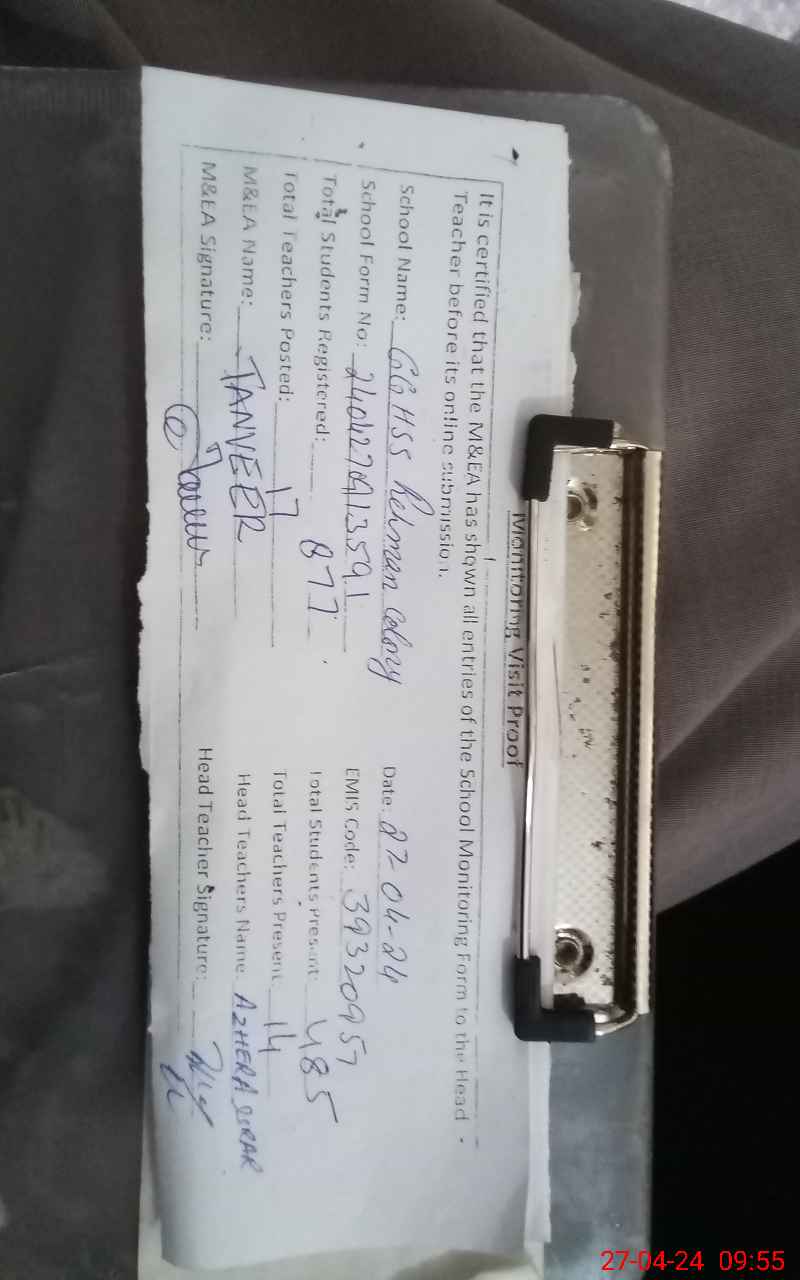 Monitoring Visit Proof
It is certified that the M&EA has shown all entries of the School Monitoring Form to the Head
Teacher before its online submission.
School Name: GGHSS Rehman Colony Date: 27-04-24
School Form No: EMIS Code: 39320957
Total Students Registered: 877 Total Students Present: 485
Total Teachers Posted: 17 Total Teachers Present: 14
M&EA Name: TANVEER Head Teachers Name: AZHERA
M&EA Signature: Head Teacher Signature:
27-04-24 09:55